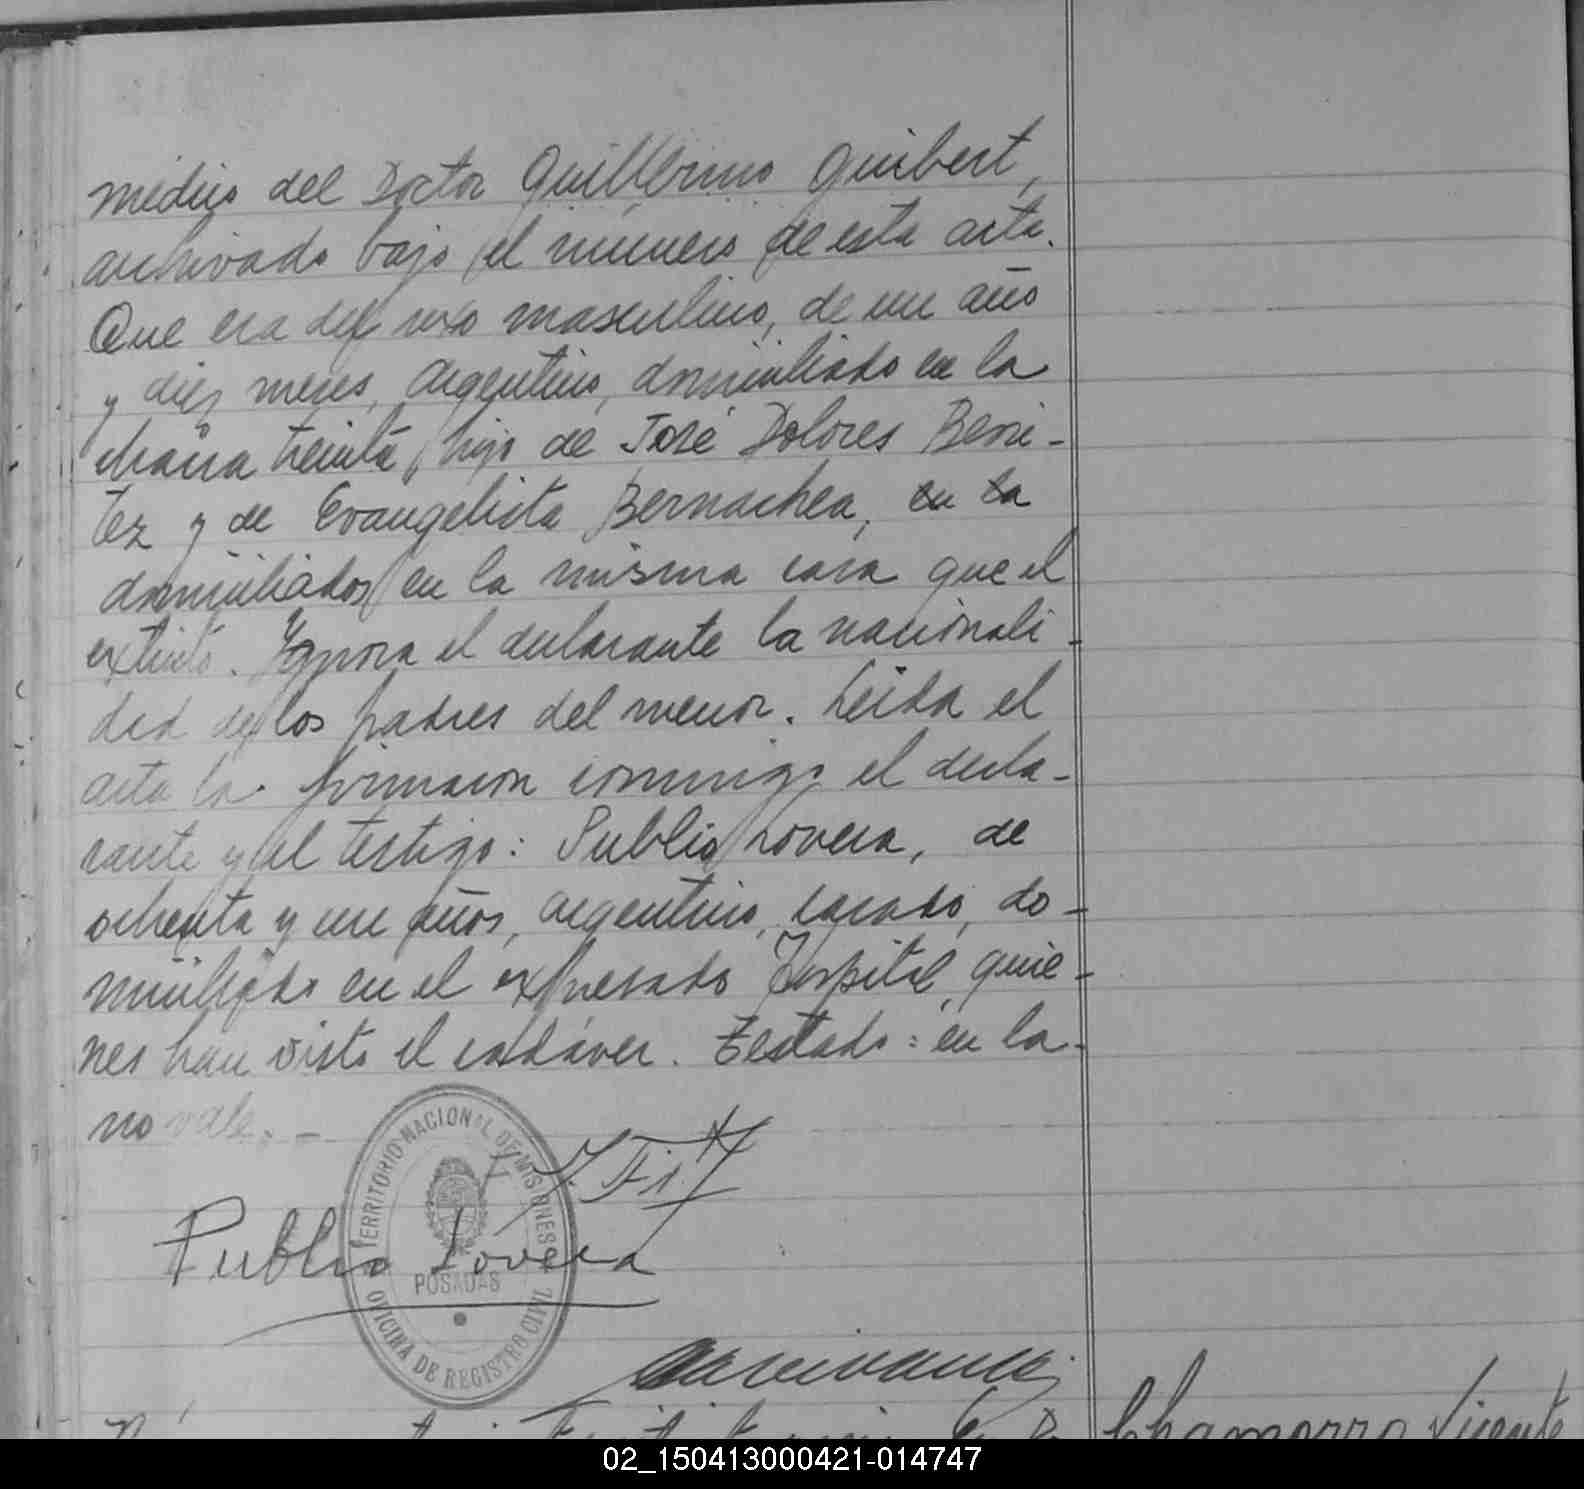 médico del Doctor Guillermo Guibert,
archivado bajo el número de esta acta.
Que era del sexo masculino, de un año
y diez meses, Argentino, domiciliado en la
chacra treinta, hijo de José Dolores Beni-
tez y de Evangelista Bernachea, en la
domiciliados en la misma casa que el
extinto. Ignora el declarante la nacionali-
dad de los padres del menor. Leida el
acta la firmaron conmigo el decla-
rante y el testigo: Publio Lovera, de
ochenta y un años, argentino, casado, do-
miciliado en el expresado Hospital, quie-
nes han visto el cadáver. Testado: en la-
no vale. -
TERRITORIO NACIONAL DE MISIONES
POSADAS
OFICINA DE REGISTRO CIVIL
Publio Lovera
Chamorro Vicente
02_150413000421-014747